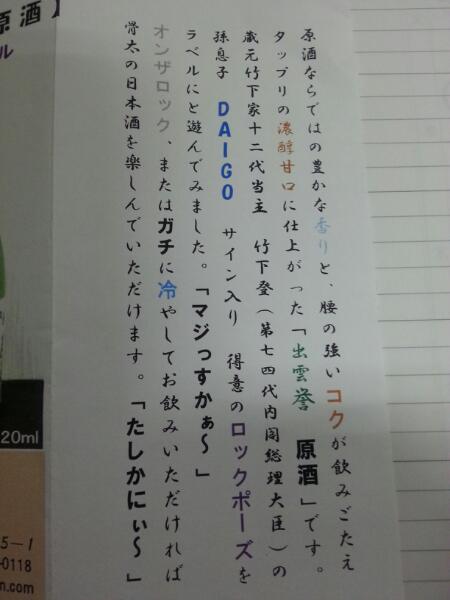 原酒ならではの豊かな香りと、腰の強いコクが飲みごたえ
タップリの濃醇甘口に仕上がった「出雲誉 原酒」です。
蔵元竹下家十二代当主 竹下登(第七四代内閣総理大臣)の
孫息子 DAIGO サイン入り 得意のロックポーズを
ラベルにと遊んでみました。「マジっすかぁ〜」
オンザロック、またはガチに冷やしてお飲みいただければ
骨太の日本酒を楽しんでいただけます。「たしかにぃ〜」
原酒】
ル
20ml
5-1
-0118
n.com